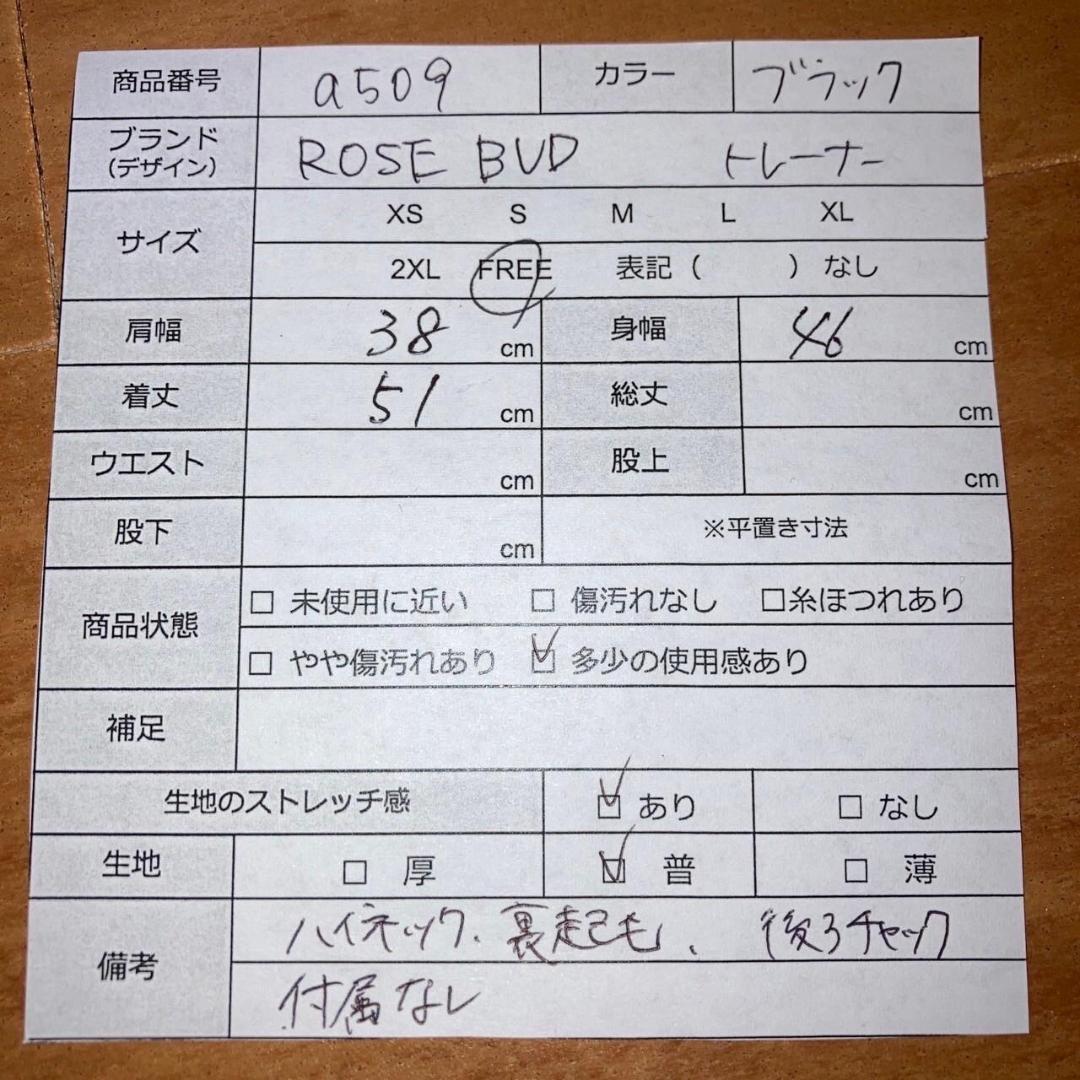 商品番号 a509 カラー ブラック
ブランド
(デザイン) ROSE BUD トレーナー
サイズ XS S M L XL
2XL FREE 表記 ( ) なし
肩幅 38 cm 身幅 46 cm
着丈 51 cm 総丈 cm
ウエスト cm 股上 cm
股下 cm ※平置き寸法
商品状態 □ 未使用に近い □ 傷汚れなし □糸ほつれあり
□ やや傷汚れあり ☑ 多少の使用感あり
補足
生地のストレッチ感 ☑ あり □ なし
生地 □ 厚 ☑ 普 □ 薄
備考 ハイネック、裏起毛、後ろチャック
付属なし